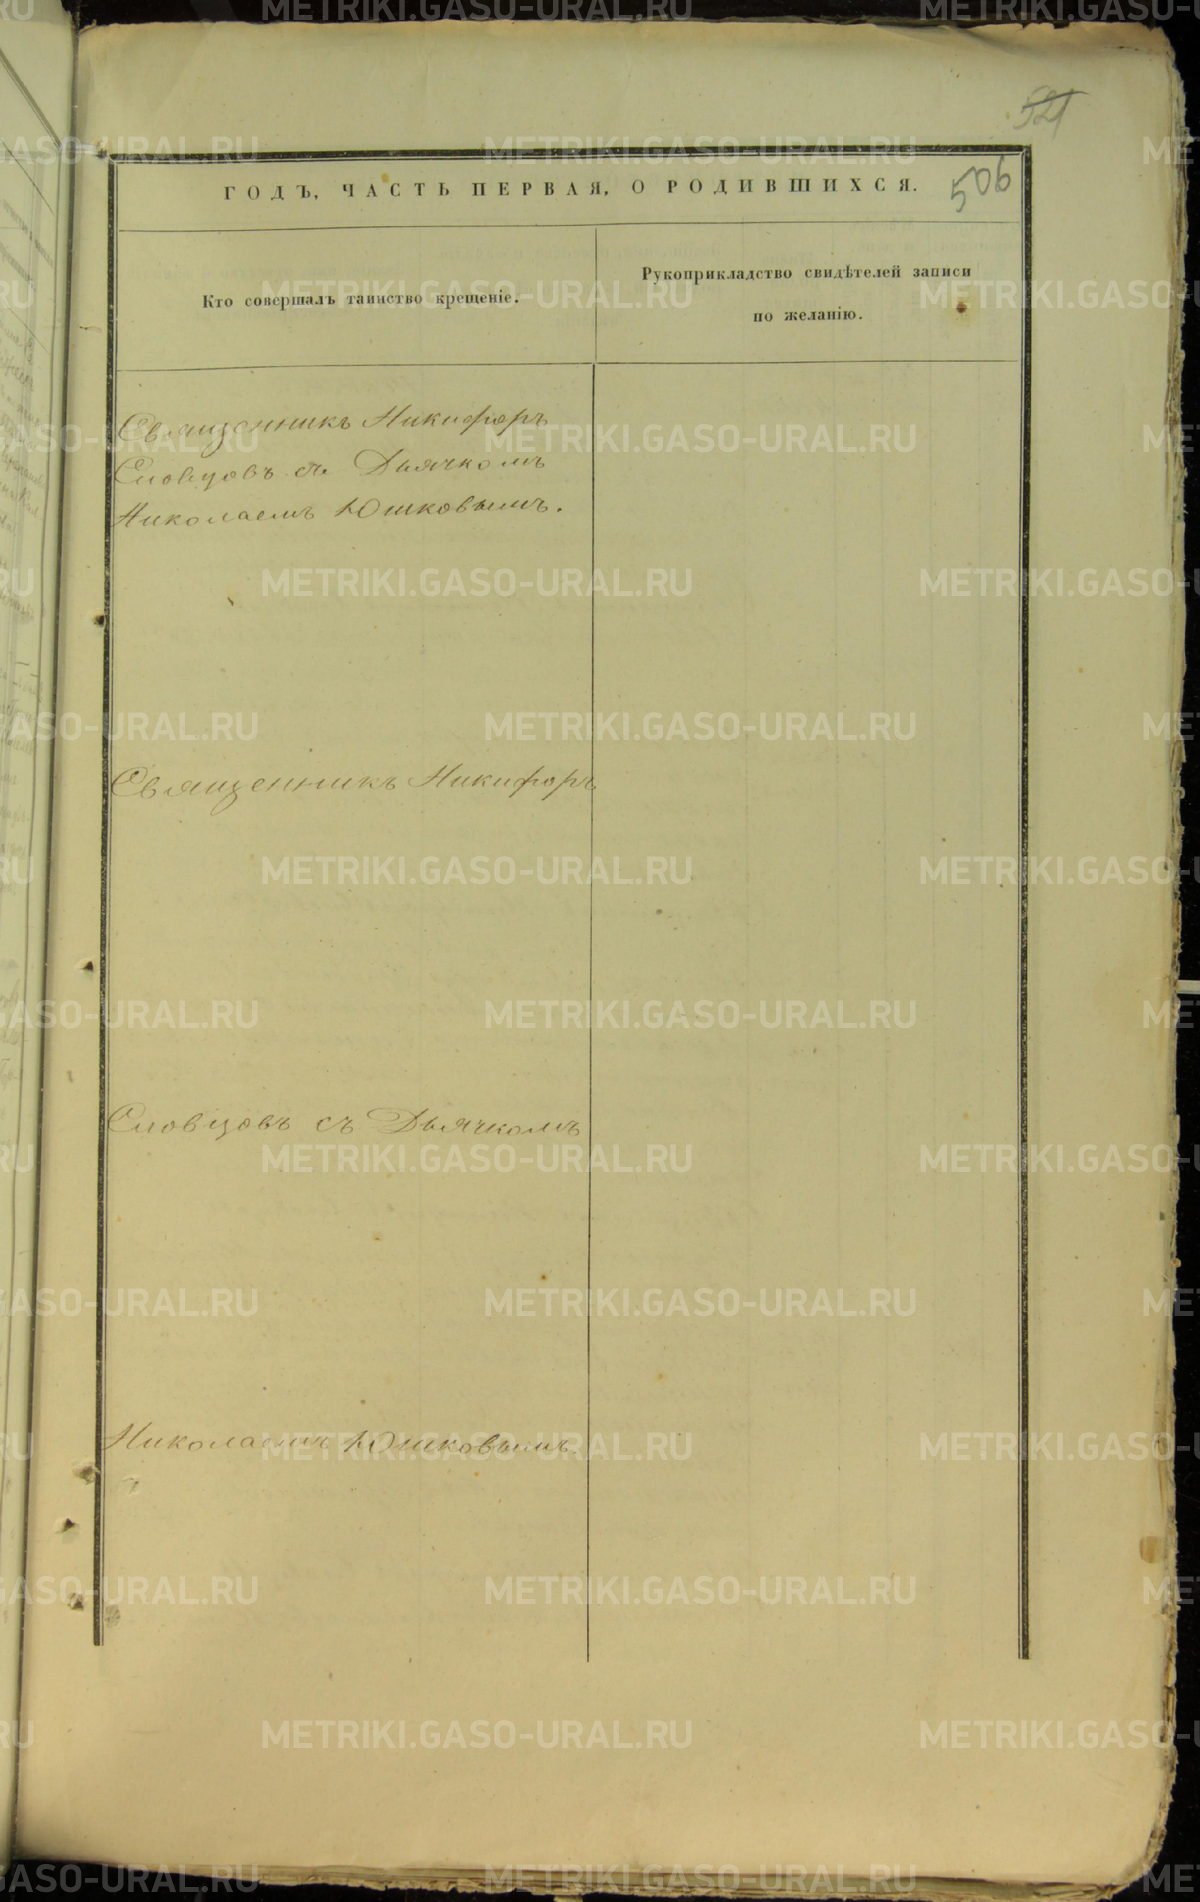 521
ГОДЪ, ЧАСТЬ ПЕРВАЯ, О РОДИВШИХСЯ.
506
Кто совершалъ таинство крещеніе.
Рукоприкладство свидѣтелей записи
по желанію.
Священникъ Никифоръ
Словцовъ съ Дьячкомъ
Николаемъ Юшковымъ.
Священникъ Никифоръ
Словцовъ съ Дьячкомъ
Николаемъ Юшковымъ.
METRIKI.GASO-URAL.RU